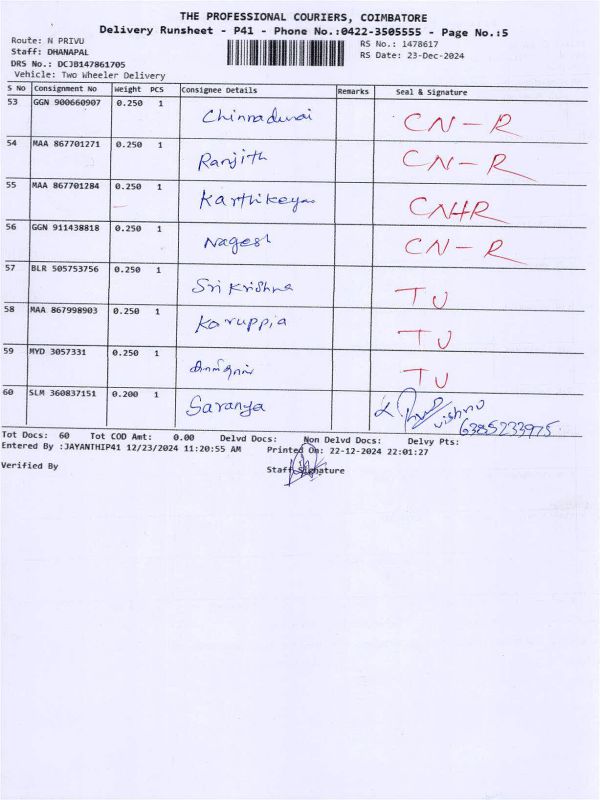 THE PROFESSIONAL COURIERS, COIMBATORE
Delivery Runsheet - P41 - Phone No.:0422-3505555 - Page No.:5
Route: N PRIVU
RS No.: 1478617
Staff: DHANAPAL
RS Date: 23-Dec-2024
DRS No.: DCJB147861705
Vehicle: Two Wheeler Delivery
S No Consignment No Weight PCS Consignee Details Remarks Seal & Signature
53 GGN 900660907 0.250 1 Chinnadurai CN-R
54 MAA 867701271 0.250 1 Ranjith CN-R
55 MAA 867701284 0.250 1 Karthikeyan CNHR
56 GGN 911438818 0.250 1 Nagesh CN-R
57 BLR 505753756 0.250 1 Sri Krishna TU
58 MAA 867998903 0.250 1 Karuppia TU
59 MYD 3057331 0.250 1 TU
60 SLM 360837151 0.200 1 Saranya Vishnu
6385233975
Tot Docs: 60 Tot COD Amt: 0.00 Delvd Docs: Non Delvd Docs: Delvy Pts:
Entered By :JAYANTHIP41 12/23/2024 11:20:55 AM Printed On: 22-12-2024 22:01:27
Verified By Staff Signature